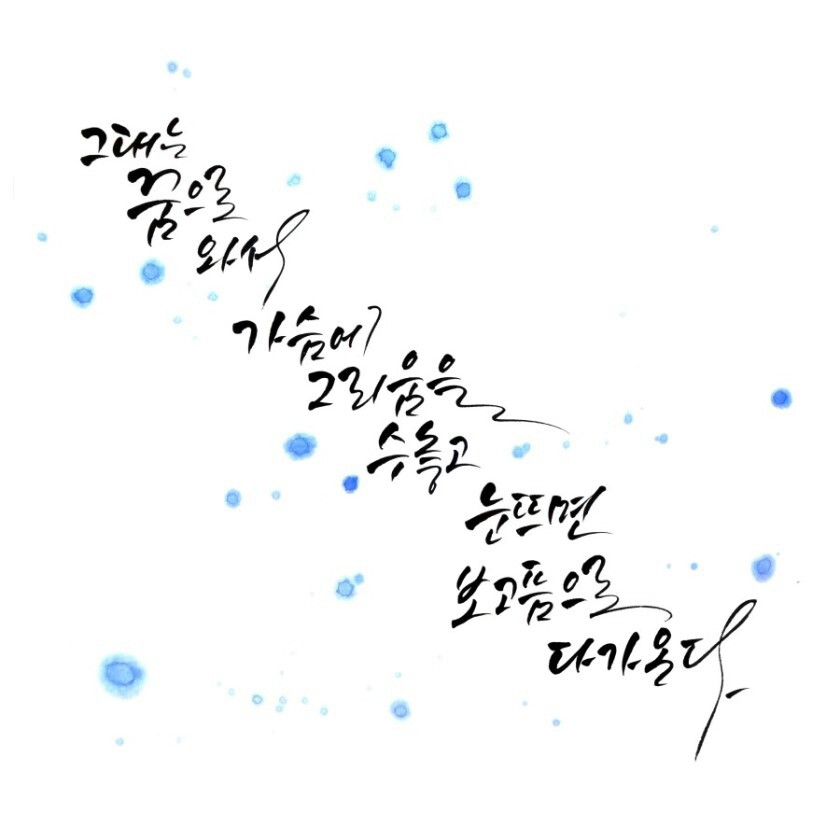 그대는
꿈으로
와서
가슴에
그리움을
수놓고
눈뜨면
보고픔으로
다가온다.